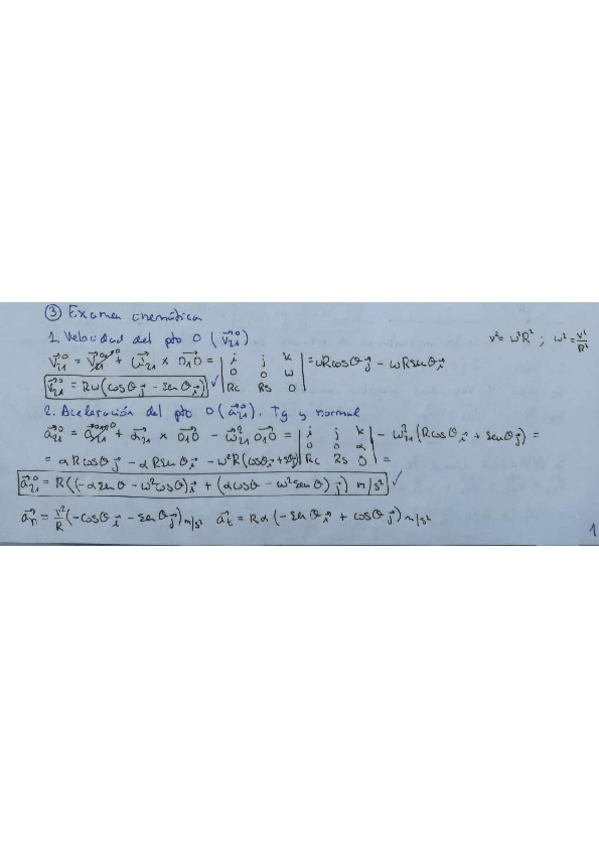 ③ Examen cinemática
1. Velocidad del pto O (v⃗₂₁⁰).
v² = ω²R² ; ω² = v²/R²
v⃗₂₁⁰ = v⃗₂₁⁰¹ + ω⃗₂₁ × O₁O = | i j k | = ωRcosθ j⃗ - ωRsenθ i⃗
0 0 ω
Rc Rs 0
v⃗₂₁⁰ = Rω(cosθ j⃗ - senθ i⃗) ✓
2. Aceleración del pto O (a⃗₂₁⁰). Tg y normal
a⃗₂₁⁰ = a⃗₂₁⁰¹ + α⃗₂₁ × O₁O - ω₂₁² O₁O = | i j k | - ω₂₁² (Rcosθ i⃗ + senθ j⃗) =
0 0 α
= αRcosθ j⃗ - αRsenθ i⃗ - ω²R(cosθ i⃗ + senθ j⃗) Rc Rs 0 =
a⃗₂₁⁰ = R((-αsenθ - ω²cosθ) i⃗ + (αcosθ - ω²senθ) j⃗) m/s² ✓
a⃗n = v²/R (-cosθ i⃗ - senθ j⃗) m/s² a⃗t = Rα(-senθ i⃗ + cosθ j⃗) m/s²
1